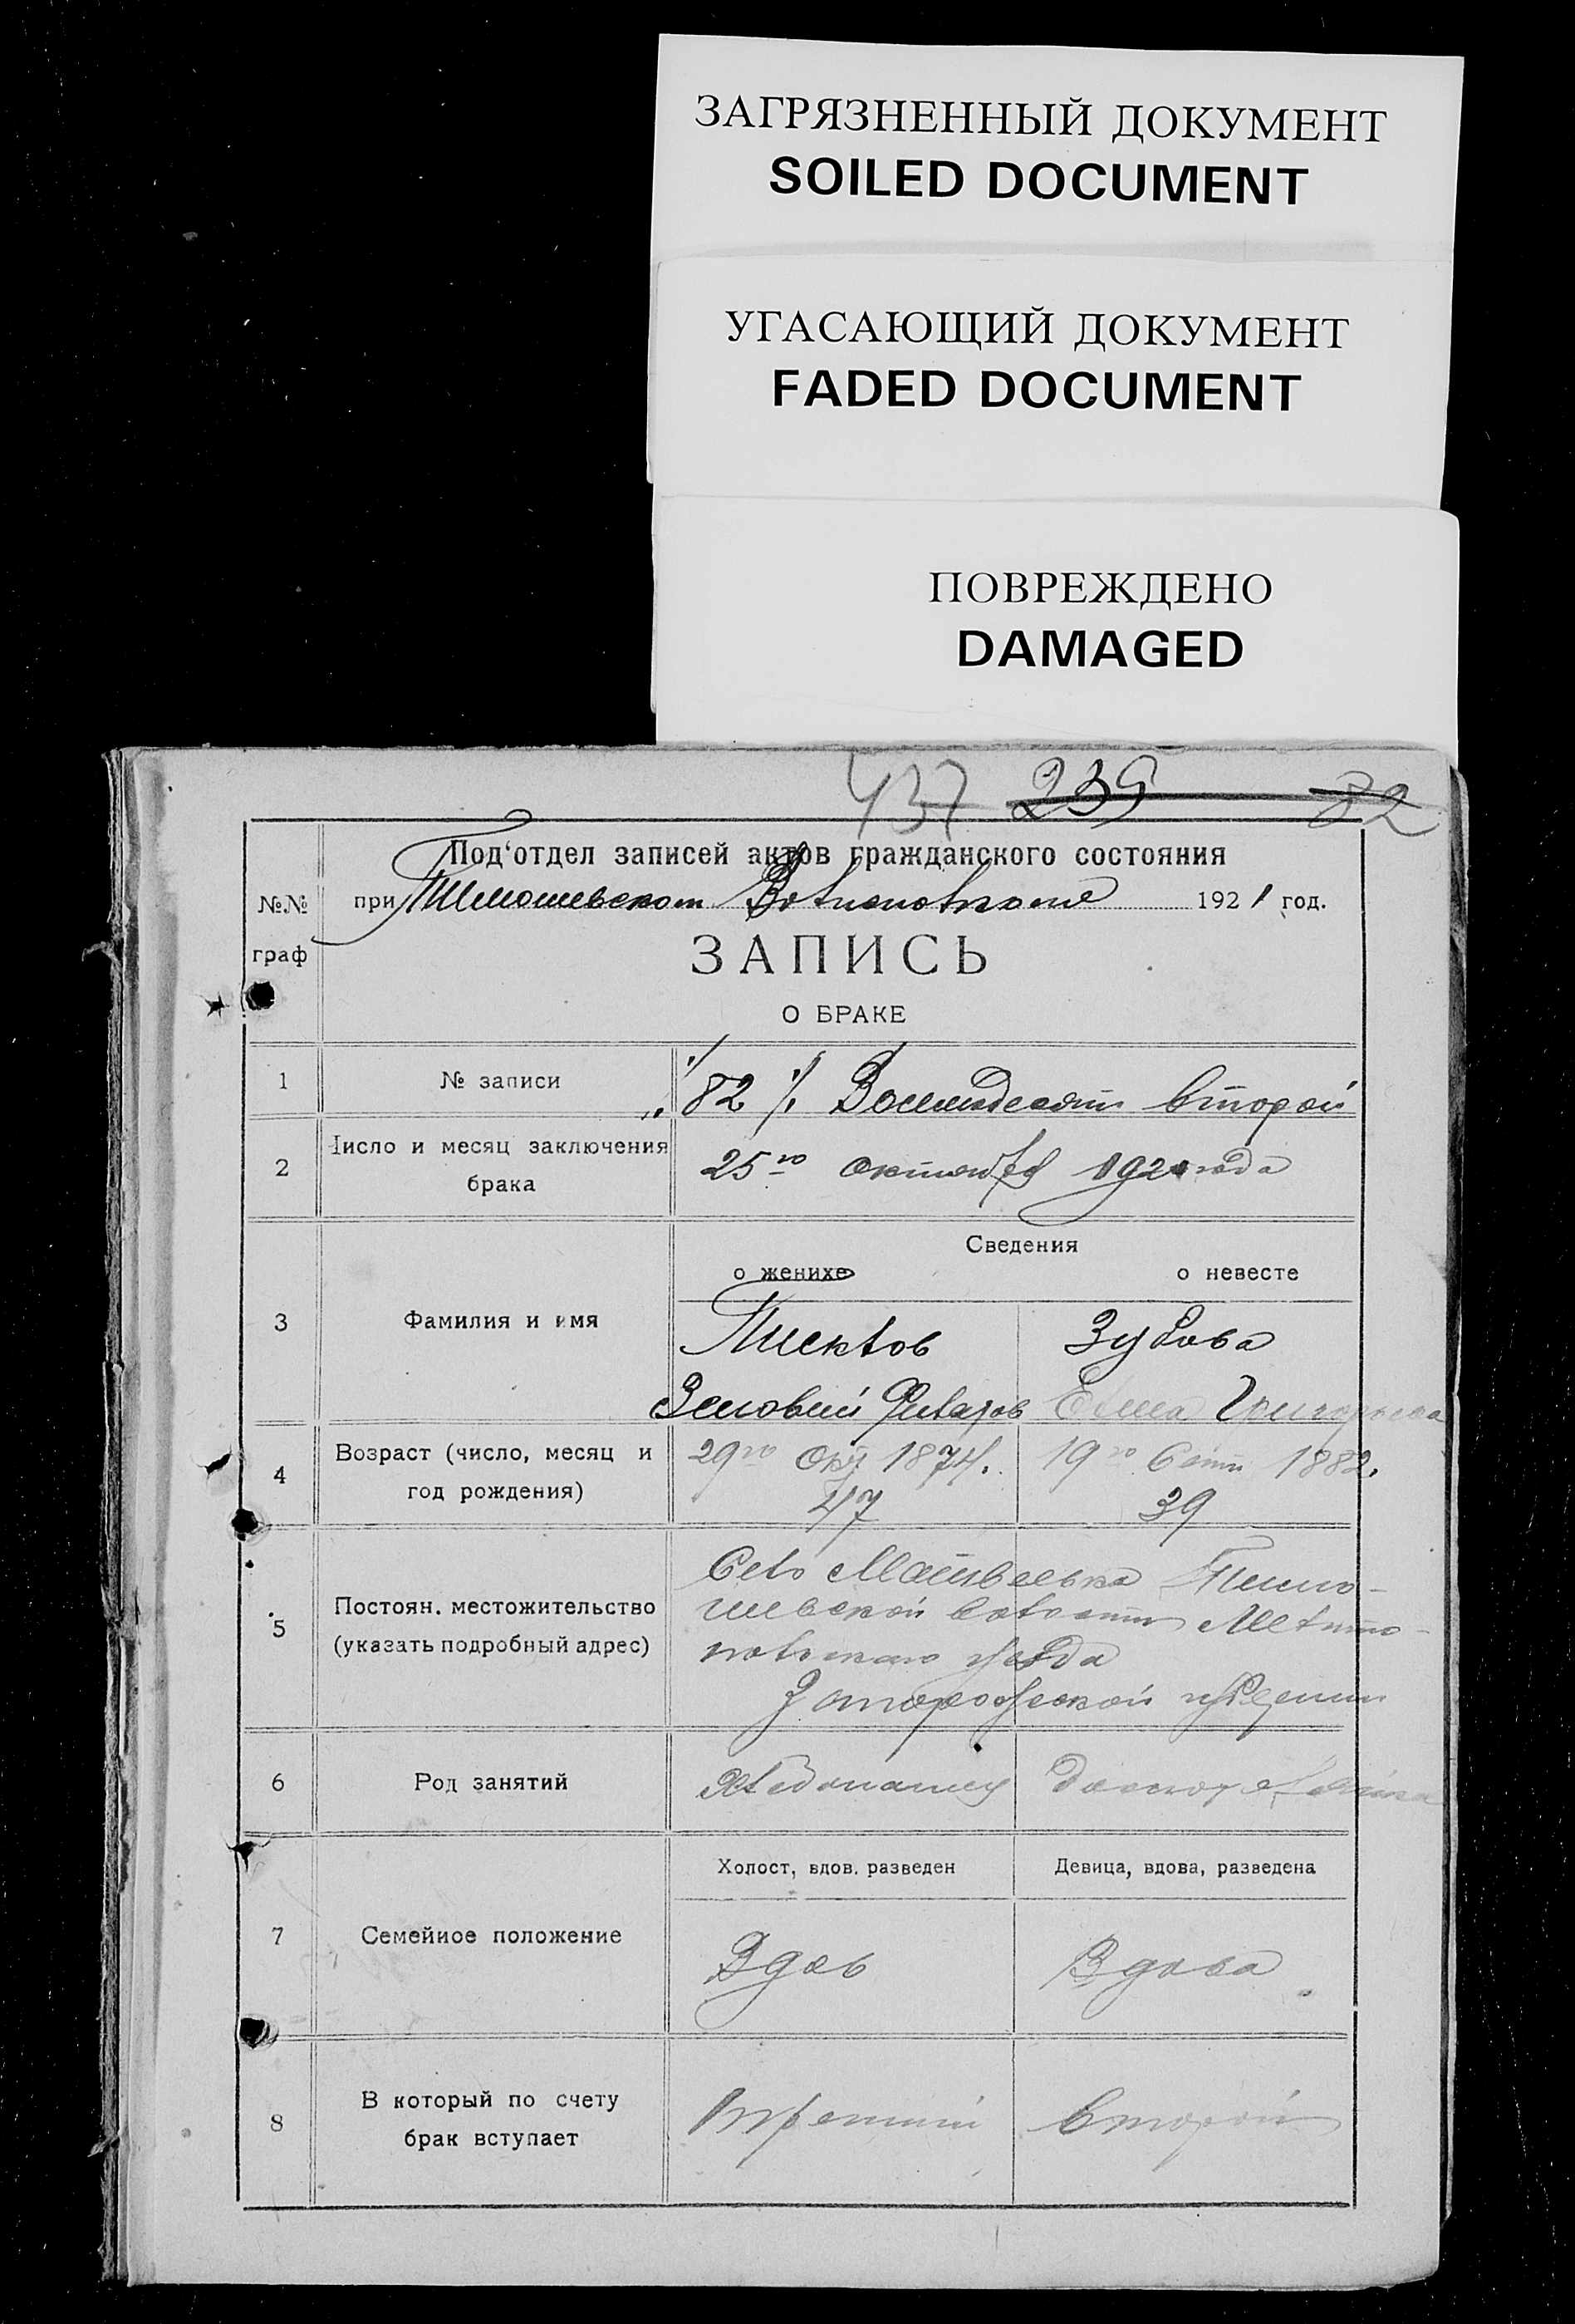 ЗАГРЯЗНЕННЫЙ ДОКУМЕНТ
SOILED DOCUMENT
УГАСАЮЩИЙ ДОКУМЕНТ
FADED DOCUMENT
ПОВРЕЖДЕНО
DAMAGED
437 239 82
Под'отдел записей актов гражданского состояния
№№ при Тимошевском Волисполкоме 1921 год.
граф
ЗАПИСЬ
О БРАКЕ
1 № записи 82 Восемьдесят второй
2 Число и месяц заключения
брака
25го октября 1921 года
Сведения
о женихе о невесте
3 Фамилия и имя
Зубова
Зиновий Елена Григорьева
4 Возраст (число, месяц и
год рождения)
29го Окт 1874. 19го Сент 1882.
47 39
5 Постоян. местожительство
(указать подробный адрес)
Село Матвеевка Тимо-
шевской волости Мелито-
польского уезда
Запорожской губернии
6 Род занятий Хлебопашец домохозяйка
Холост, вдов. разведен Девица, вдова, разведена
7 Семейное положение Вдов Вдова
8 В который по счету
брак вступает
третий второй